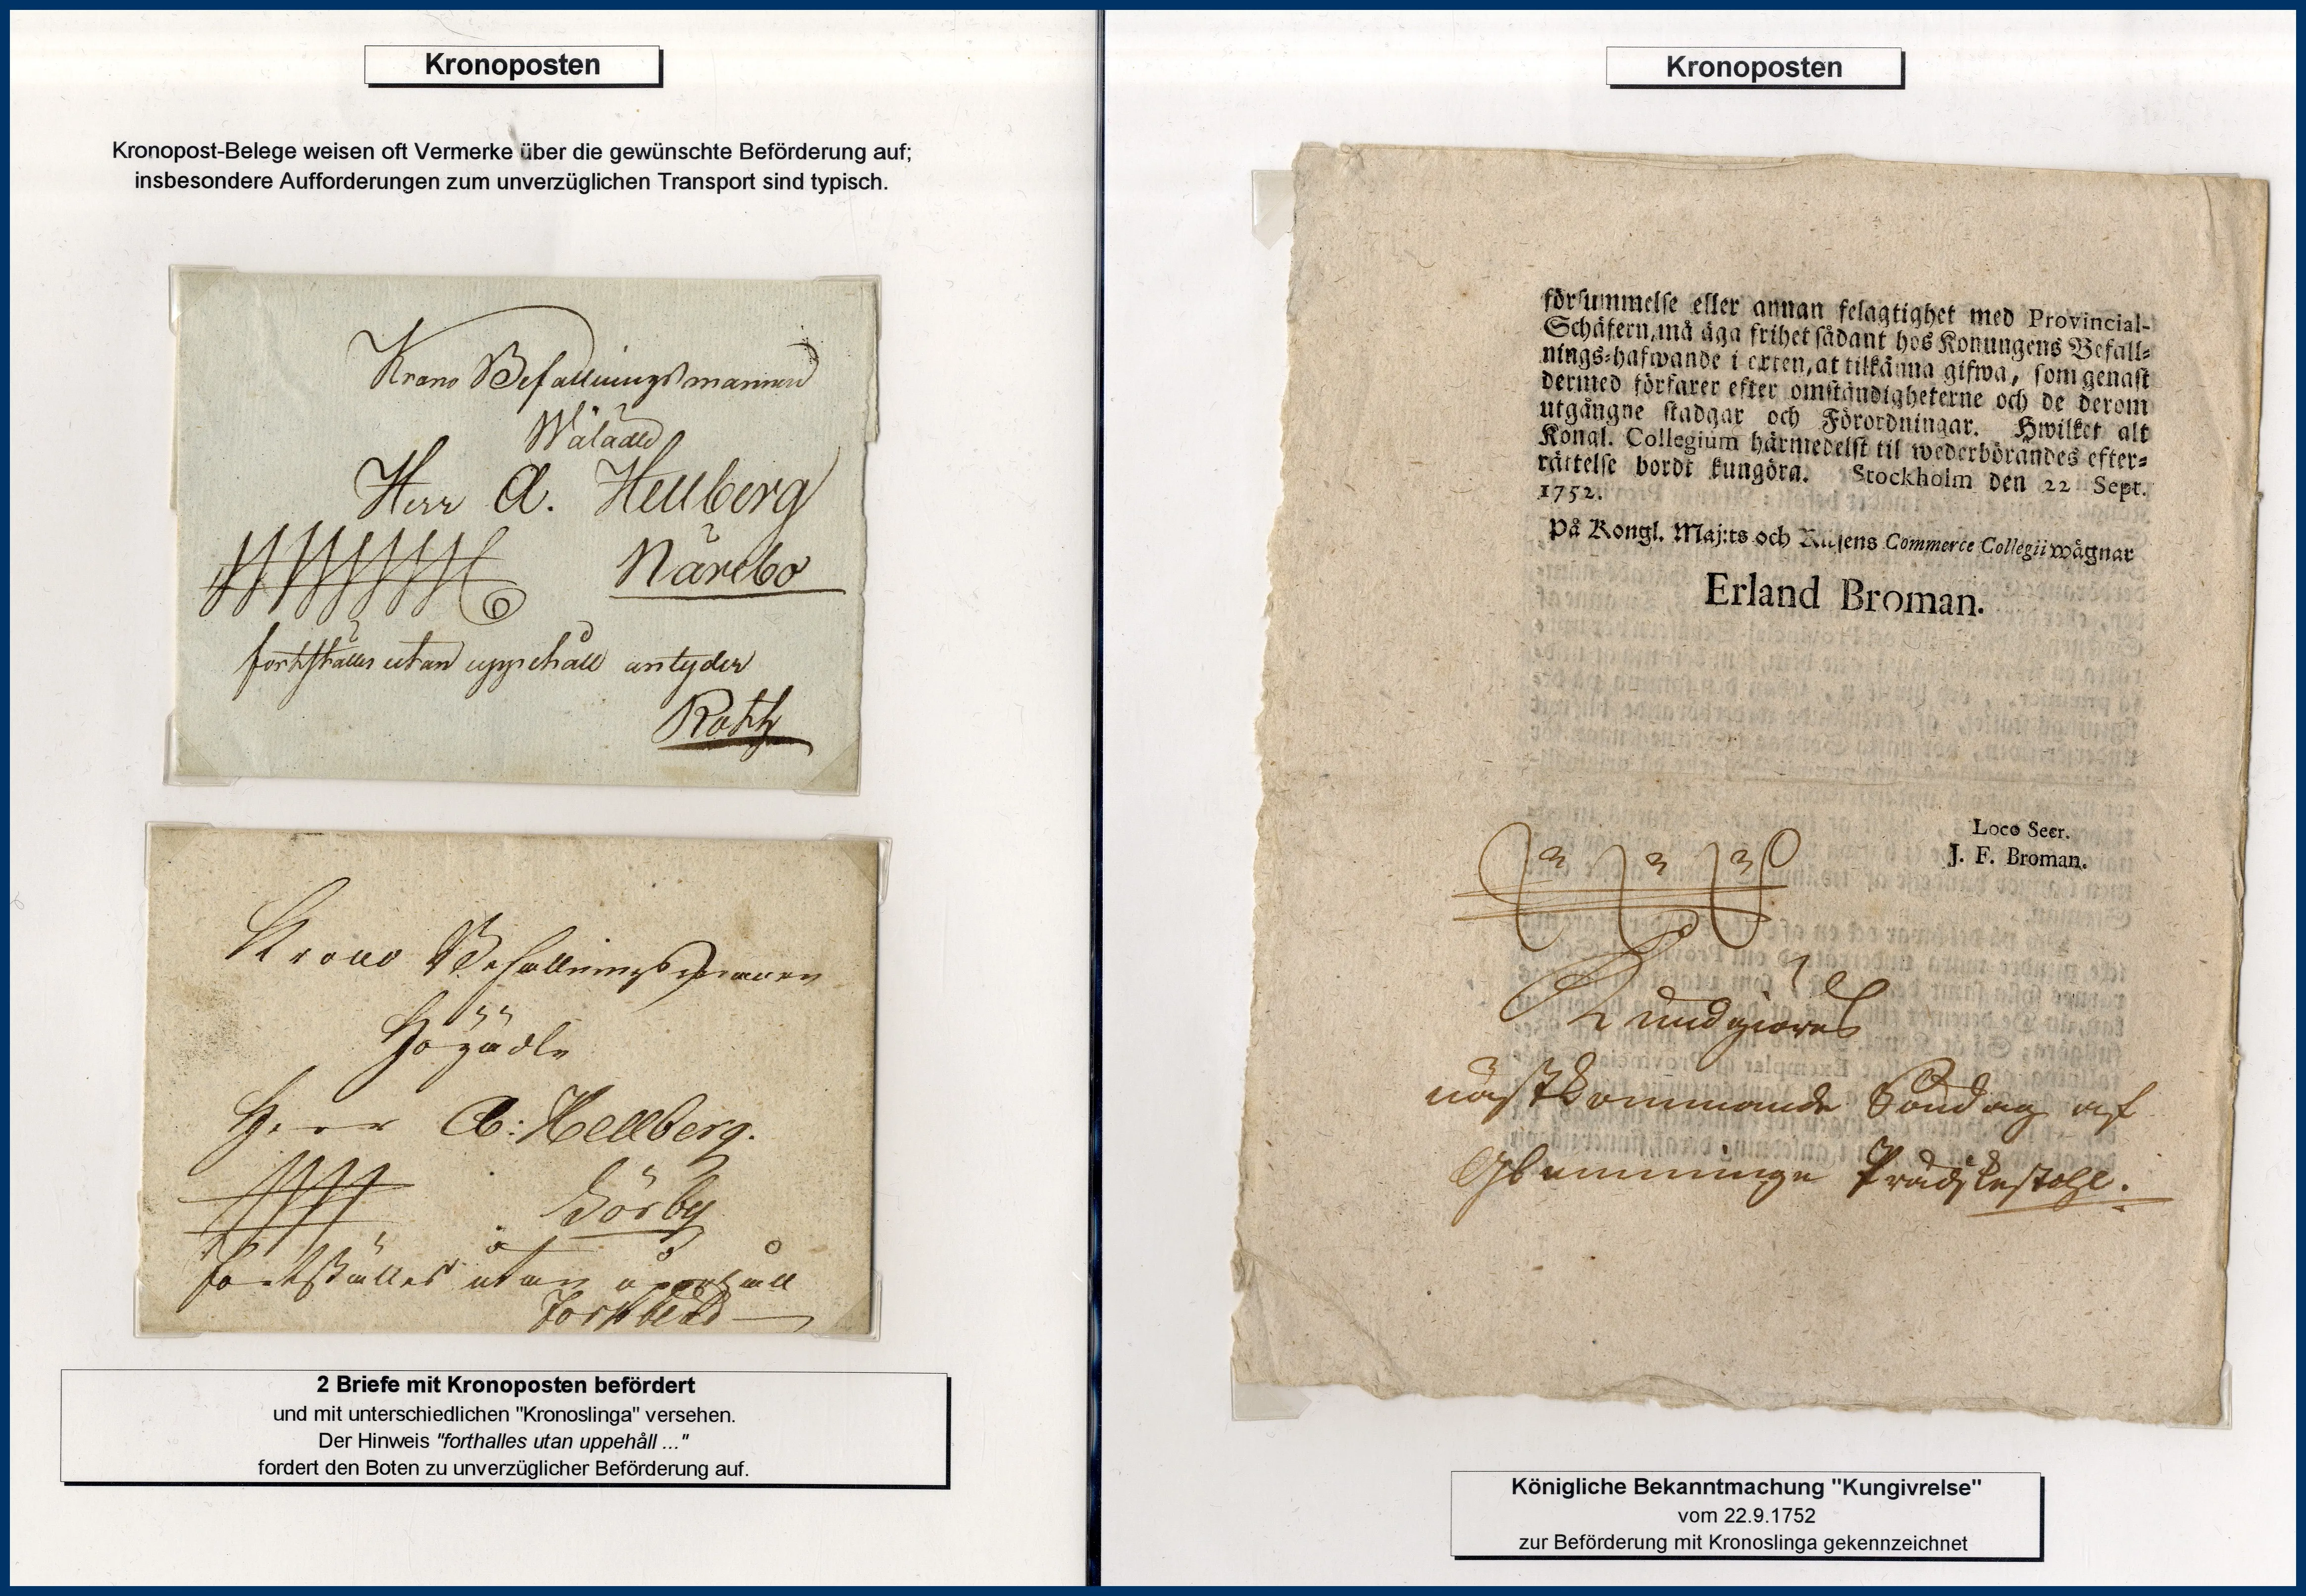 Kronoposten
Kronopost-Belege weisen oft Vermerke über die gewünschte Beförderung auf;
insbesondere Aufforderungen zum unverzüglichen Transport sind typisch.
Krono Befallningsmannen
Wälädle
Herr A. Hellberg
Närebo
fortskälles utan uppehåll antyder
Roth
Krono Befallningsmannen
Högädle
Herr A: Hellberg.
Sörby
fortskälles utan uppehåll
2 Briefe mit Kronoposten befördert
und mit unterschiedlichen "Kronoslinga" versehen.
Der Hinweis "forthalles utan uppehåll ..."
fordert den Boten zu unverzüglicher Beförderung auf.
Kronoposten
försummelse eller annan felagtighet med Provincial-
Schäfern, må äga frihet sådant hos Konungens Befall-
nings-hafwande i orten, at tilkänna gifwa, som genast
dermed förfarer efter omständigheterne och de derom
utgångne stadgar och Förordningar. Hwilket alt
Kongl. Collegium härmedelst til wederbörandes efter-
rättelse bordt kungöra. Stockholm den 22 Sept.
1752.
På Kongl. Maj:ts och Riksens Commerce Collegii wägnar
Erland Broman.
Loco Secr.
J. F. Broman.
Kundgiöres
nästkommande Söndag af
Glemminge Prädikestohl.
Königliche Bekanntmachung "Kungivrelse"
vom 22.9.1752
zur Beförderung mit Kronoslinga gekennzeichnet